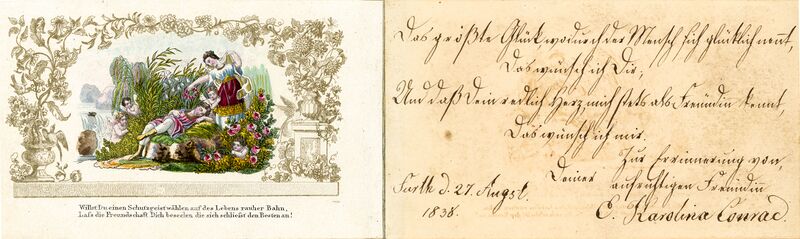 Willst Du einen Schutzgeist wählen auf des Lebens rauher Bahn,
Laſs die Freundschaft Dich beseelen die sich schlieſst den Besten an!
Das größte Glück, wodurch der Mensch sich glücklich nennt,
Das wünsch ich Dir,
Und daß Dein redlich Herz mich stets als Freündin kennt,
Das wünsch ich mir.
Zur Errinnerung von,
Deiner aufrichtigen Freündin
E. Karolina Conrad.
Fürth d. 27. Augst.
1838.